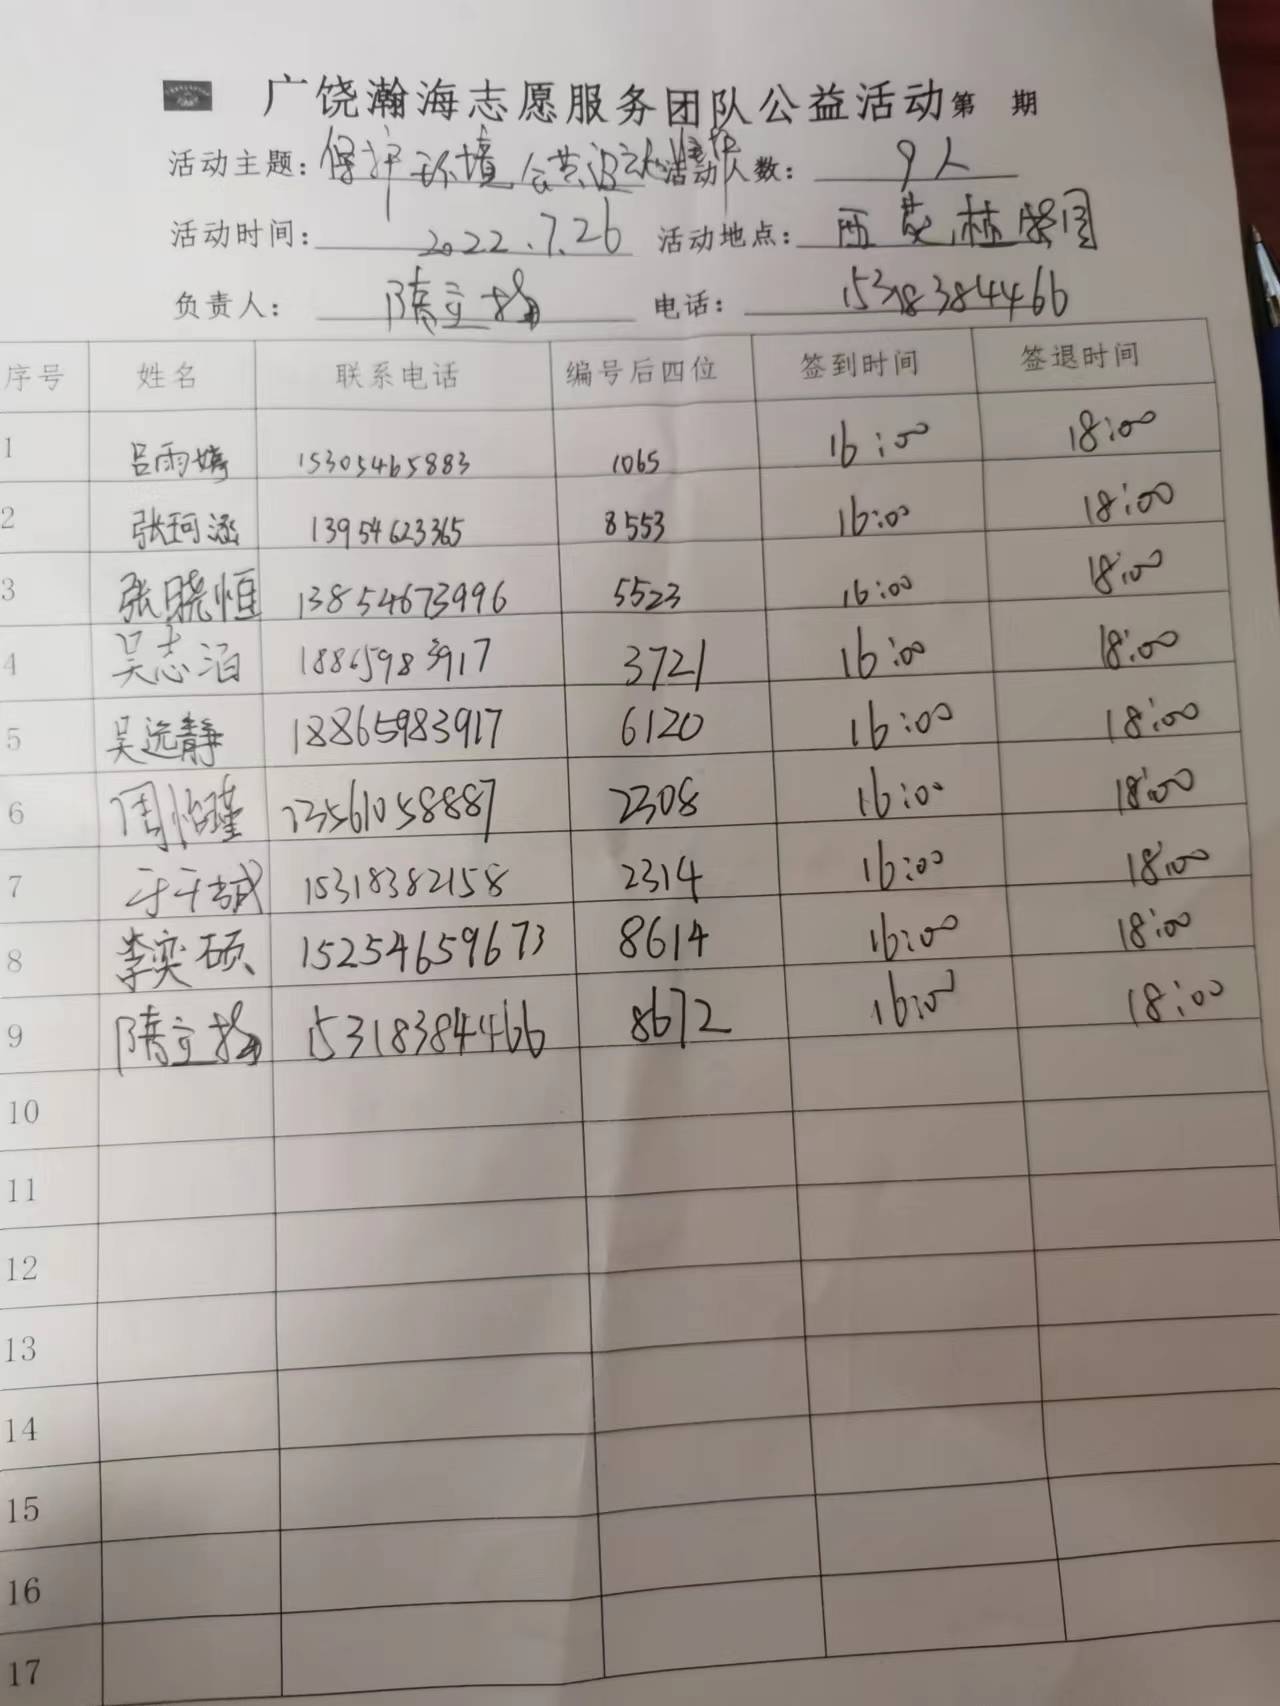 广饶瀚海志愿服务团队公益活动第 期
活动主题: 保护环境 公共设 活动人数: 9人
活动时间: 2022.7.26 活动地点: 西 林
负责人: 隋立 电话: 15318384466
序号 姓名 联系电话 编号后四位 签到时间 签退时间
1 吕雨婷 15305465883 1065 16:00 18:00
2 张珂涵 13954623365 8553 16:00 18:00
3 张晓恒 13854673996 5523 16:00 18:00
4 吴志泊 18865983917 3721 16:00 18:00
5 吴远静 18865983917 6120 16:00 18:00
6 周怡瑾 13561058887 2308 16:00 18:00
7 于千 15318382158 2314 16:00 18:00
8 李奕硕 15254659673 8614 16:00 18:00
9 隋立 15318384466 8672 16:00 18:00
10
11
12
13
14
15
16
17